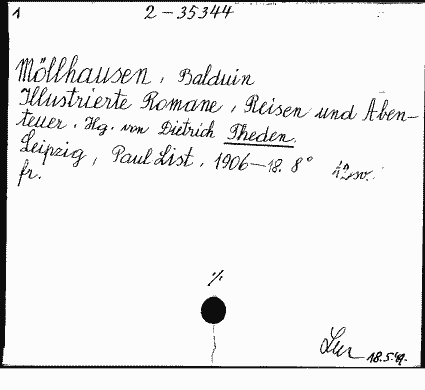 1 2-35344
Möllhausen, Balduin
Illustrierte Romane, Reisen und Aben-
teuer. Hg. von Dietrich Theden.
Leipzig, Paul List, 1906-18. 8° 12sv.
fr.
%
18.5.